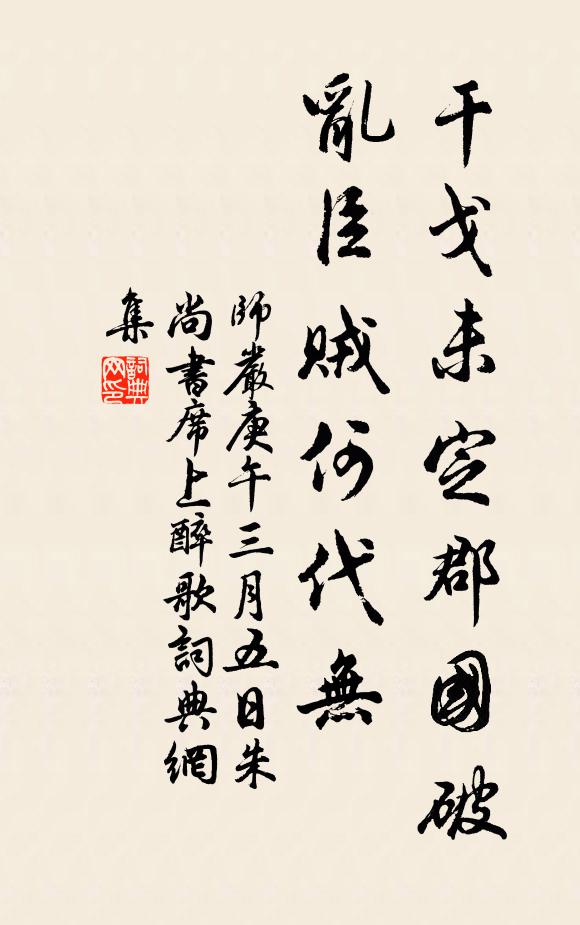 干戈未定郡國破
亂臣賊何代無
師嚴庚午三月五日朱
尚書席上醉歌詞典網
集
詞典
网印